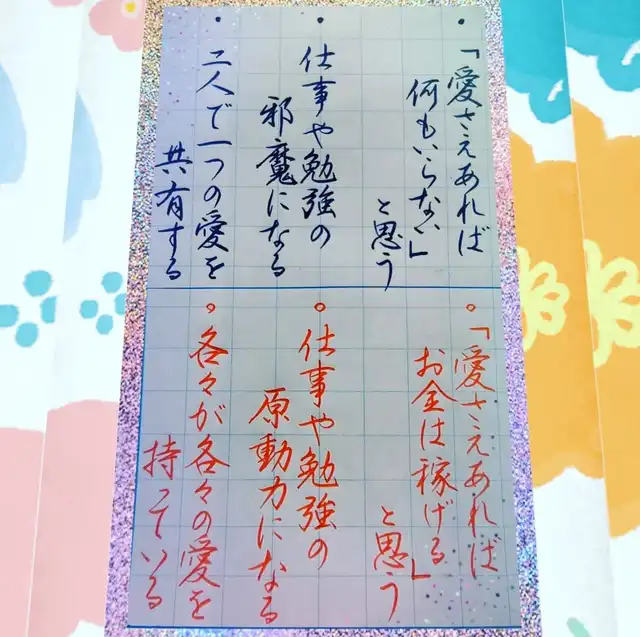 ・「愛さえあれば
何もいらない」
と思う
・仕事や勉強の
邪魔になる
・二人で一つの愛を
共有する
○「愛さえあれば
お金は稼げる」
と思う
○仕事や勉強の
原動力になる
○各々が各々の愛を
持っている